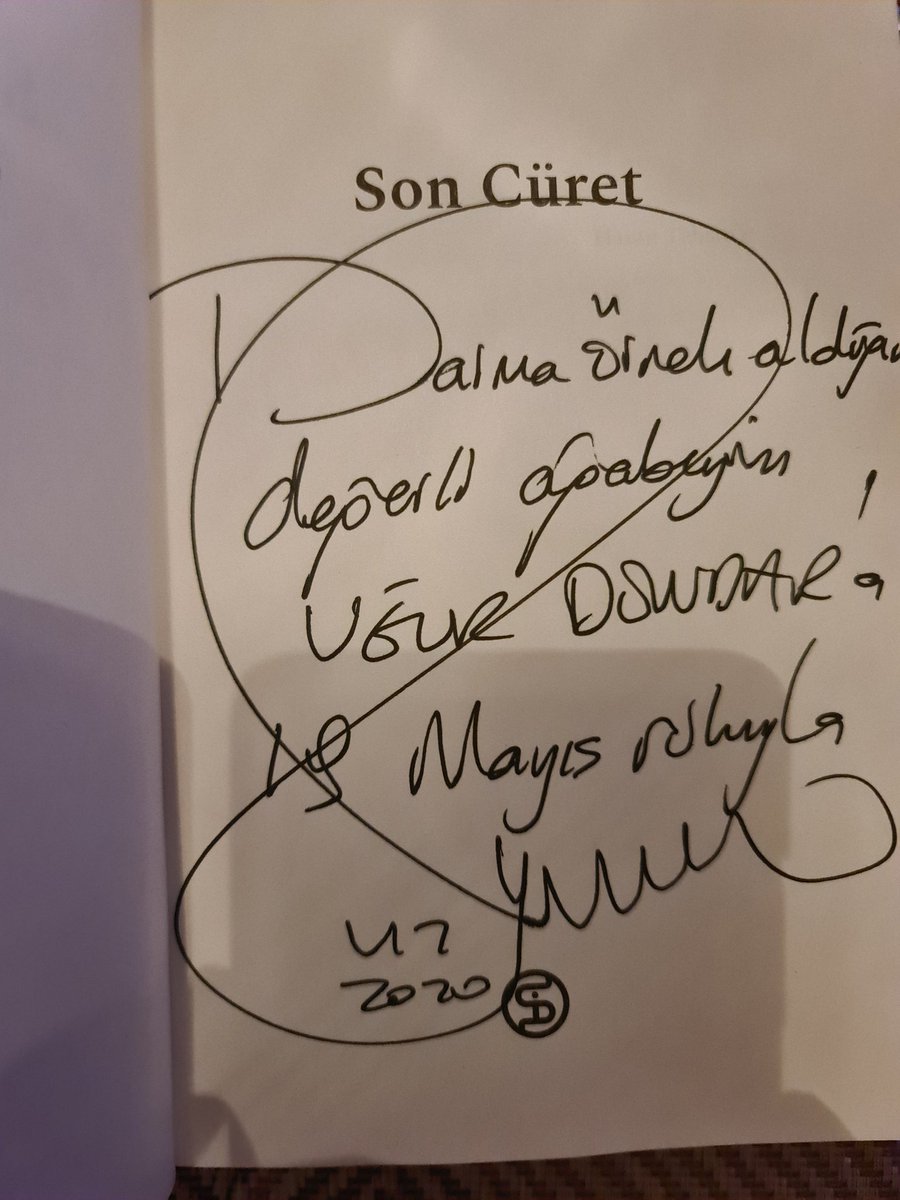 Son Cüret
Daima örnek aldığım
değerli ağabeyim
UĞUR DÜNDAR'a
19 Mayıs ruhuyla
2020